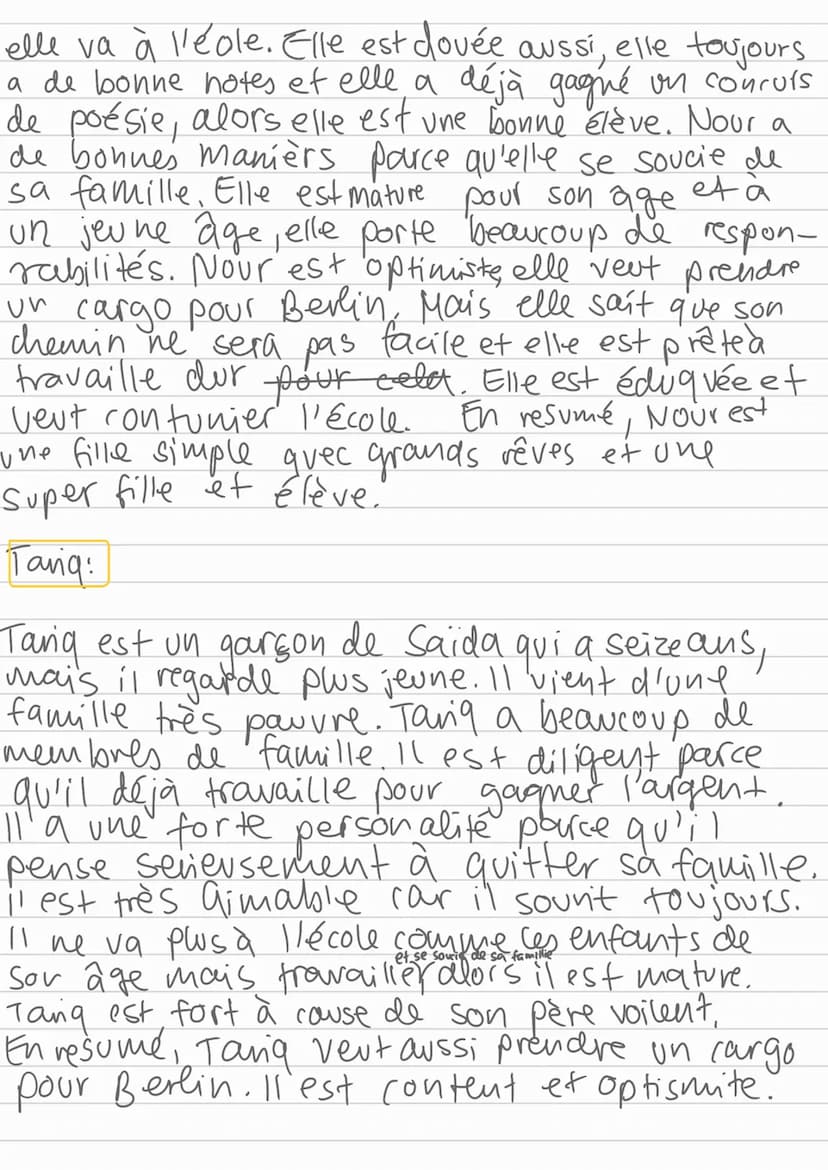 elle va à l'éole. Elle est douée aussi, elle toujours
a de bonne notes et elle a déjà gagné un concuis
de poésie, alors elle est une bonne élève. Nour a
de bonnes manièrs parce qu'elle se soucie de
sa famille. Elle est mature pour son âge et à
un jeune âge, elle porte beaucoup de respon-
sabilités. Nour est optimiste, elle veut prendre
un cargo pour Berlin. Mais elle sait que son
chemin ne sera pas facile et elle est prête à
travaille dur pour cela. Elle est éduquée et
veut contunier l'école. En resumé, Nour est
une fille simple avec grands rêves et une
super fille et élève.
Tariq:
Tariq est un garçon de Saïda qui a seize ans,
mais il regarde plus jeune. Il vient d'une
famille très pauvre. Tariq a beaucoup de
membres de famille. Il est diligent parce
qu'il déjà travaille pour gagner l'argent.
Il a une forte personalité parce qu'il
pense serieusement à quitter sa famille.
il est très aimable car il sourit toujours.
Il ne va plus à l'école comme les enfants de
et se soucie de sa famille
son âge mais travailler alors il est mature.
Tariq est fort à cause de son père voilent.
En resumé, Tariq veut aussi prendre un cargo
pour Berlin. Il est content et optismite.